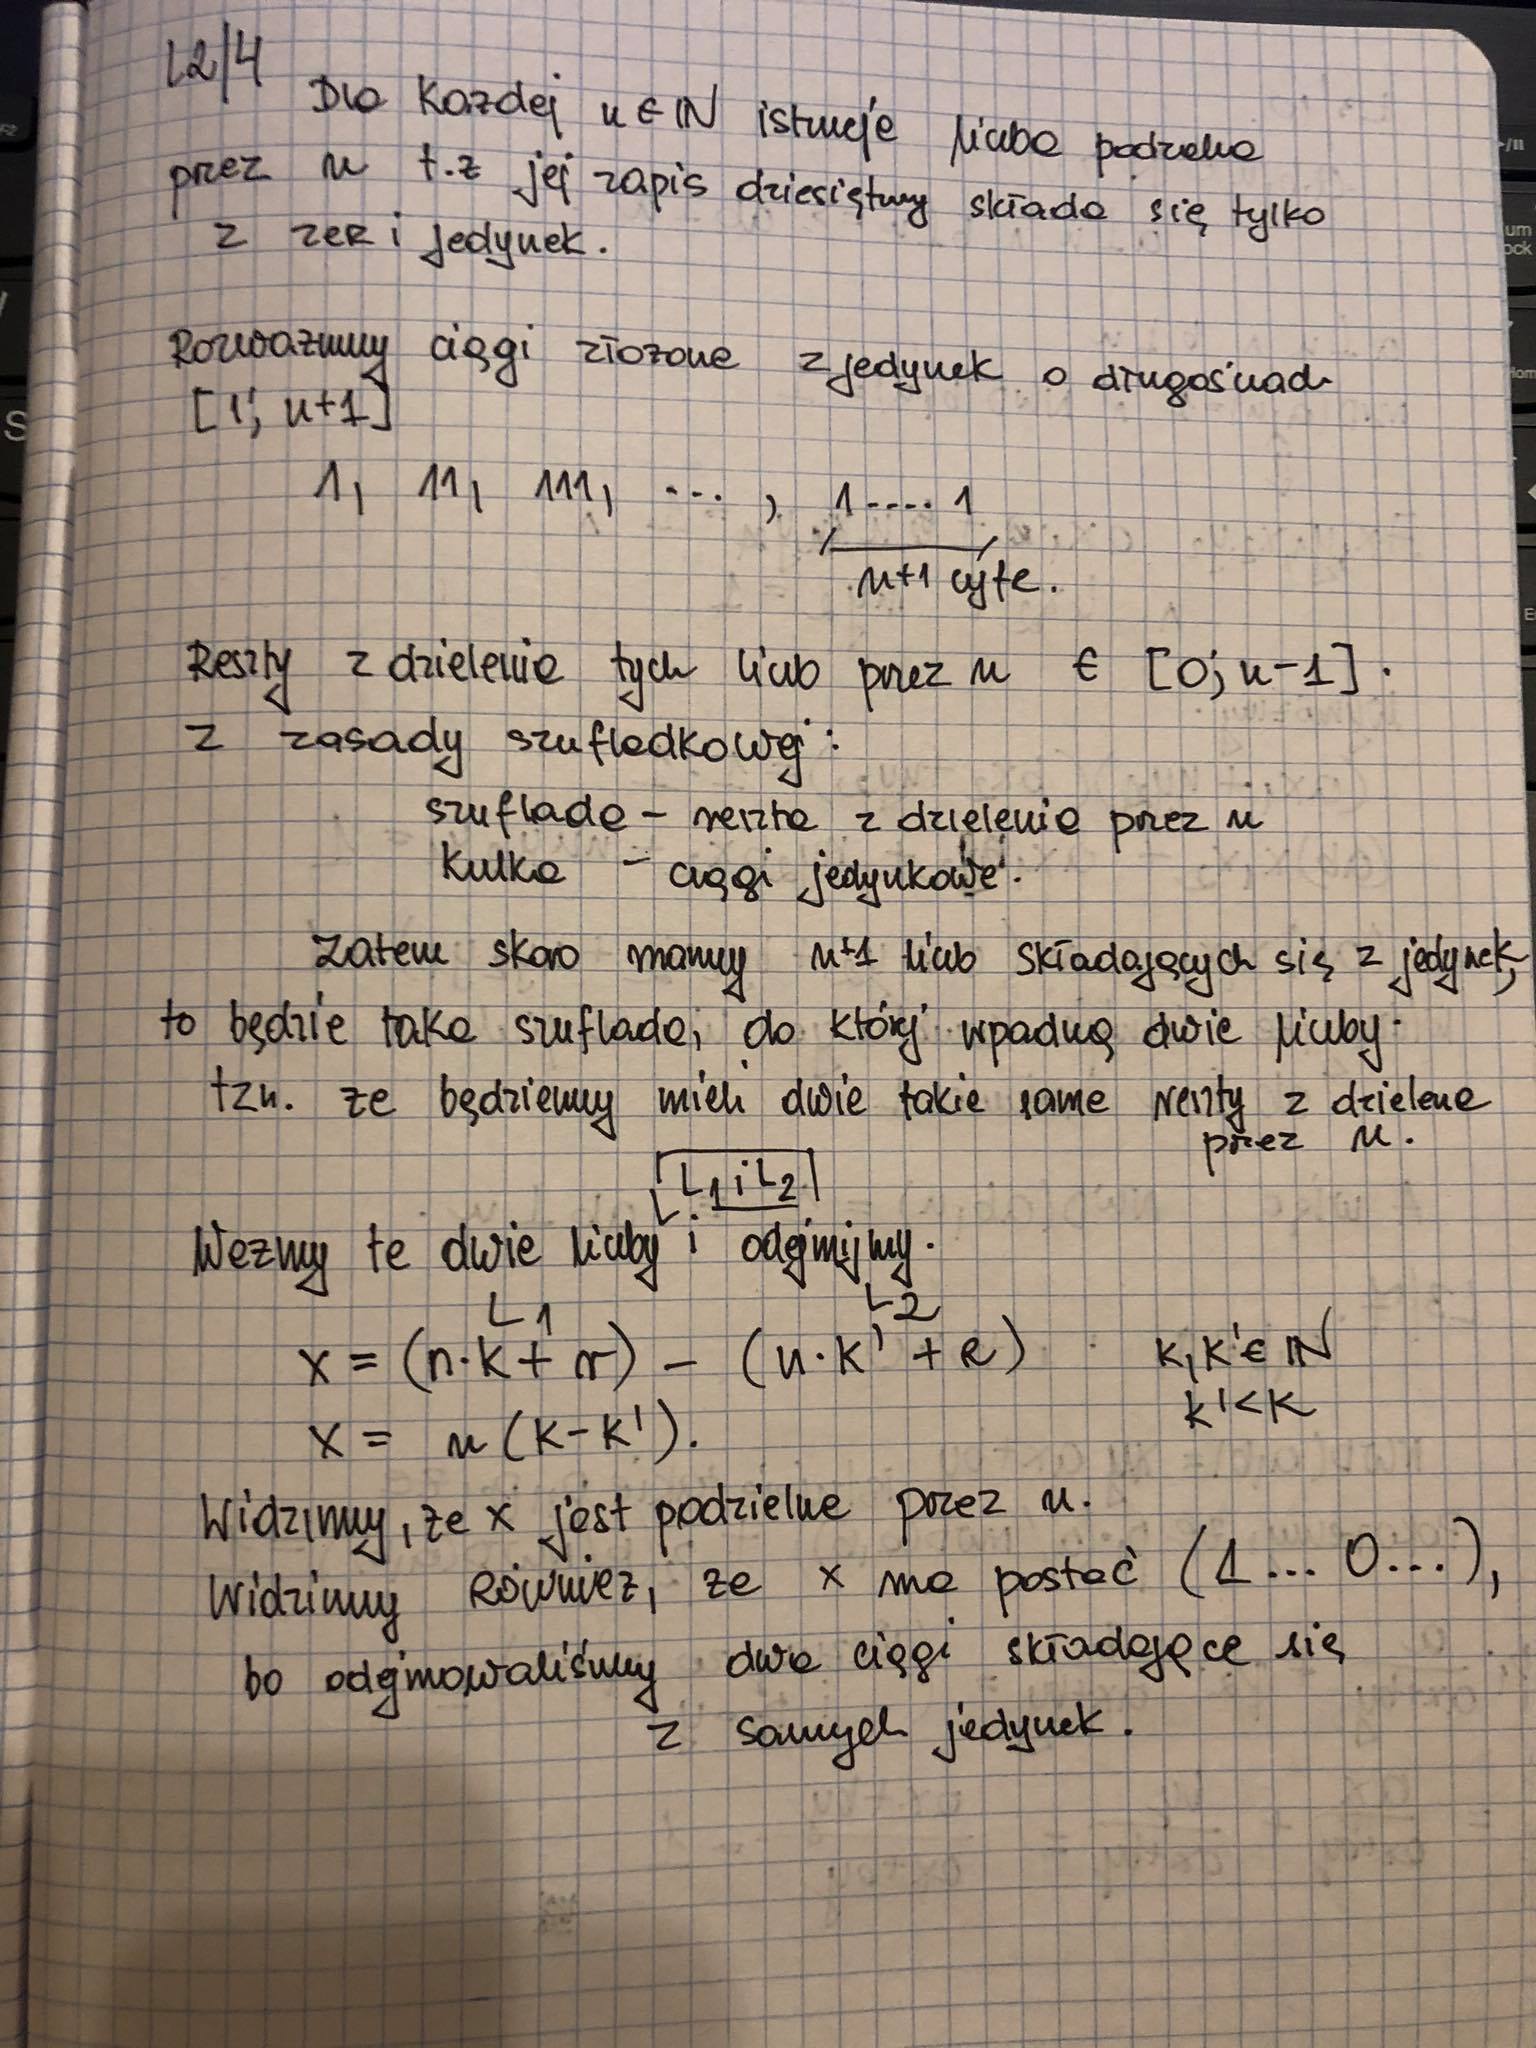 L2/4
Dla każdej n ∈ ℕ istnieje liczba podzielna
przez n t.ż jej zapis dziesiętny składa się tylko
z zer i jedynek.
Rozważmy ciągi złożone z jedynek o długościach
[1; n+1]
1, 11, 111, ..., 1....1
n+1 cyfr.
Reszty z dzielenia tych liczb przez n ∈ [0; n-1].
z zasady szufladkowej:
szuflada - reszta z dzielenia przez n
kulka - ciągi jedynkowe.
Zatem skoro mamy n+1 liczb składających się z jedynek,
to będzie taka szuflada, do której wpadną dwie liczby.
tzn. że będziemy mieli dwie takie same reszty z dzielenia
przez n.
L1 i L2
Weźmy te dwie liczby i odejmijmy.
L1 L2
x = (n·k + r) - (n·k' + r) k, k' ∈ ℕ
k' < k
x = n(k-k').
Widzimy, że x jest podzielne przez n.
Widzimy również, że x ma postać (1... 0...),
bo odejmowaliśmy dwa ciągi składające się
z samych jedynek.